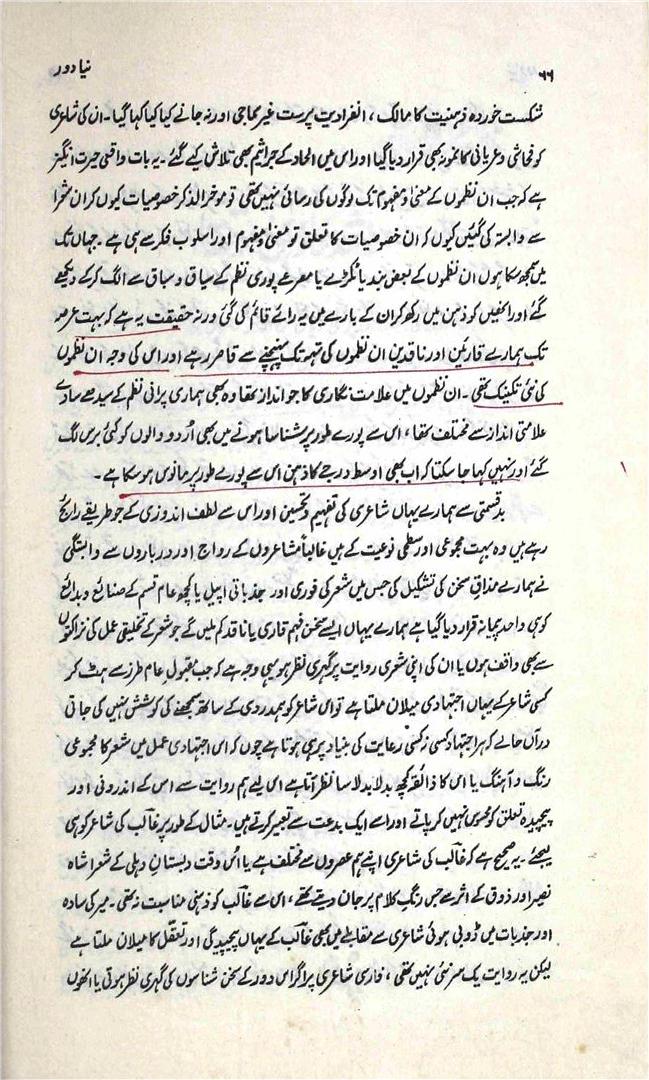 ۶۶
نیا دور
شکست خوردہ ذہنیت کا مالک، انفرادیت پرست غیر سماجی اور نہ جانے کیا کیا کہا گیا۔ ان کی شاعری
کو فحاشی و عریانی کا نمونہ بھی قرار دیا گیا اور اس میں الحاد کے جراثیم بھی تلاش کیے گئے۔ یہ بات واقعی حیرت انگیز
ہے کہ جب ان نظموں کے معنی و مفہوم تک لوگوں کی رسائی نہیں تھی تو موخر الذکر خصوصیات کیوں کر ان شعرا
سے وابستہ کی گئیں کیوں کہ ان خصوصیات کا تعلق تو معنی و مفہوم اور اسلوب فکر سے ہی ہے۔ جہاں تک
میں سمجھ سکا ہوں ان نظموں کے بعض بند یا ٹکڑے یا مصرعے پوری نظم کے سیاق و سباق سے الگ کر کے دیکھے
گئے اور انھیں کو ذہن میں رکھ کر ان کے بارے میں یہ رائے قائم کی گئی ورنہ حقیقت یہ ہے کہ بہت عرصہ
تک ہمارے قارئین اور ناقدین ان نظموں کی تہہ تک پہنچنے سے قاصر رہے اور اس کی وجہ ان نظموں
کی نئی تکنیک تھی۔ ان نظموں میں علامت نگاری کا جو انداز تھا وہ بھی ہماری پرانی نظم کے سیدھے سادے
علامتی انداز سے مختلف تھا، اس سے پورے طور پر شناسا ہونے میں بھی اُردو والوں کو کئی برس لگ
گئے اور نہیں کہا جا سکتا کہ اب بھی اوسط درجے کا ذہن اس سے پورے طور پر مانوس ہو سکا ہے۔
بدقسمتی سے ہمارے یہاں شاعری کی تفہیم و تحسین اور اس سے لطف اندوزی کے جو طریقے رائج
رہے ہیں وہ بہت مجموعی اور سطحی نوعیت کے ہیں غالباً مشاعروں کے رواج اور درباروں سے وابستگی
نے ہمارے مذاقِ سخن کی تشکیل کی جس میں شعر کی فوری اور جذباتی اپیل یا کچھ عام قسم کے صنائع و بدائع
کو ہی واحد پیمانہ قرار دیا گیا ہے ہمارے یہاں ایسے سخن فہم قاری یا ناقد کم ملیں گے جو شعر کے تخلیقی عمل کی نزاکتوں
سے بھی واقف ہوں یا ان کی اپنی شعری روایت پر گہری نظر ہو یہی وجہ ہے کہ جب مقبولِ عام طرز سے ہٹ کر
کسی شاعر کے یہاں اجتہادی میلان ملتا ہے تو اس شاعر کو ہمدردی کے ساتھ سمجھنے کی کوشش نہیں کی جاتی
درآں حالے کہ ہر اجتہاد کسی نہ کسی رعایت کی بنیاد پر ہی ہوتا ہے چوں کہ اس اجتہادی عمل میں شعر کا مجموعی
رنگ و آہنگ یا اس کا ذائقہ کچھ بدلا بدلا سا نظر آتا ہے اس لیے ہم روایت سے اس کے اندرونی اور
پیچیدہ تعلق کو محسوس نہیں کر پاتے اور اسے ایک بدعت سے تعبیر کرتے ہیں۔ مثال کے طور پر غالب کی شاعر کو ہی
لیجیے۔ یہ صحیح ہے کہ غالب کی شاعری اپنے ہم عصروں سے مختلف ہے یا اُس وقت دبستانِ دہلی کے شعرا شاہ
نصیر اور ذوق کے اثر سے جس رنگِ کلام پر جان دیتے تھے، اس سے غالب کو ذہنی مناسبت نہ تھی۔ میر کی سادہ
اور جذبات میں ڈوبی ہوئی شاعری سے مقابلے میں بھی غالب کے یہاں پیچیدگی اور تعقل کا میلان ملتا ہے
لیکن یہ روایت یک سر نئی نہیں تھی، فارسی شاعری پر اگر اس دور کے سخن شناسوں کی گہری نظر ہوتی یا انھوں